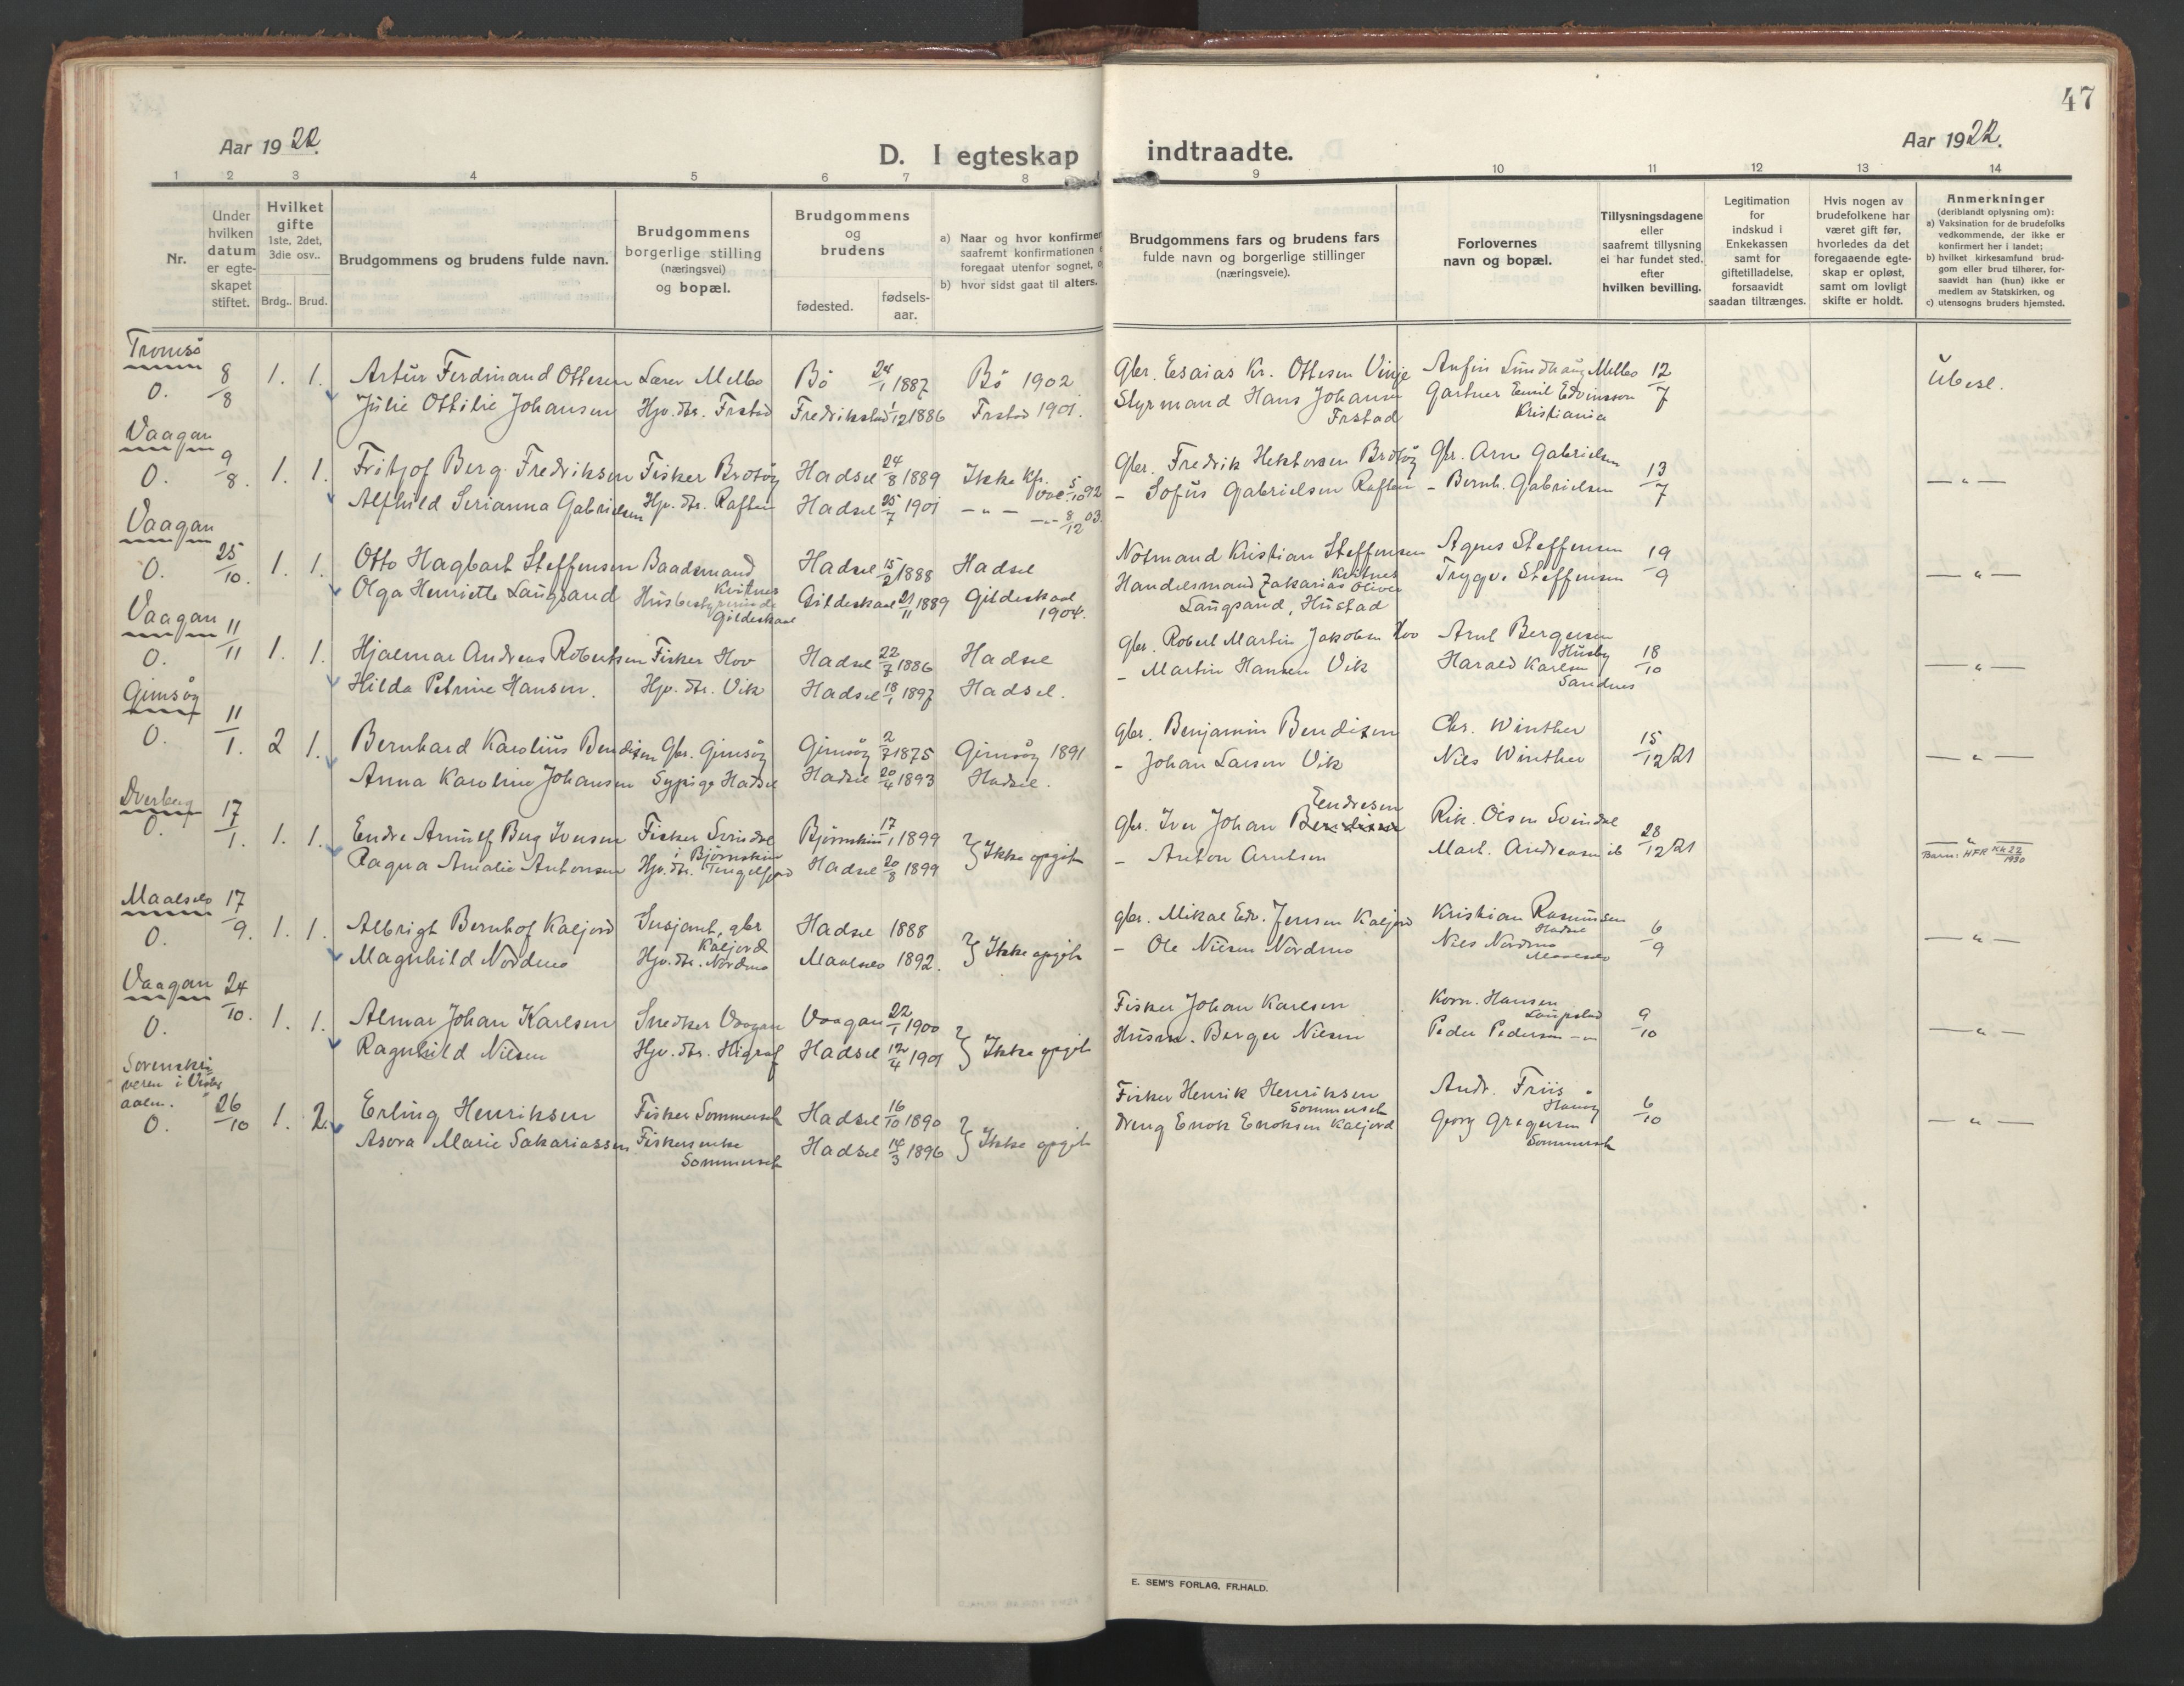 47
Aar 1922.
D. I egteskap indtraadte.
Aar 1922.
1 2 3 4 5 6 7 8 9 10 11 12 13 14
Nr.
Under hvilken datum er egteskapet stiftet.
Hvilket gifte 1ste, 2det, 3die osv..
Brdg.. Brud.
Brudgommens og brudens fulde navn.
Brudgommens borgerlige stilling (næringsvei) og bopæl.
Brudgommens og brudens
fødested. fødsels-aar.
a) Naar og hvor konfirmer
saafremt konfirmationen
foregaat utenfor sognet, o
b) hvor sidst gaat til alters.
Brudgommens fars og brudens fars
fulde navn og borgerlige stillinger
(næringsveie).
Forlovernes
navn og bopæl.
Tillysningsdagene
eller
saafremt tillysning
ei har fundet sted.
efter
hvilken bevilling.
Legitimation
for
indskud i
Enkekassen
samt for
giftetilladelse,
forsaavidt
saadan tiltrænges.
Hvis nogen av
brudefolkene har
været gift før,
hvorledes da det
foregaaende egte-
skap er opløst,
samt om lovligt
skifte er holdt.
Anmerkninger
(deriblandt oplysning om):
a) Vaksination for de brudefolks
vedkommende, der ikke er
konfirmert her i landet;
b) hvilket kirkesamfund brud-
gom eller brud tilhører, for-
saavidt han (hun) ikke er
medlem av Statskirken, og
c) utensogns bruders hjemsted.
Tromsø
0. 8/8 1. 1. Artur Ferdinand Ottesen Lærer Melbo Bö 24/1 1887 Bö 1902 Gbr. Esaias Kr. Ottesen Vinje Anfin Lundhaug Melbo 12/7 Ubesl.
Julie Ottilie Johansen Hjv. dtr. Frstad Fredrikstad 1/12 1886 Frstad 1901. Styrmand Hans Johansen Frstad Gartner Emil Edvinsson Kristiania
Vaagan
0. 9/8. 1. 1. Fritjof Berg Fredriksen Fisker Brotöy Hadsel 24/8 1889 Ikke kfr. vac 5/10 92 Gbr. Fredrik Hektorsen Brotöy Gbr. Arne Gabrielsen 13/7 — " —
Alfhild Serianna Gabrielsen Hjv. dtr. Raften Hadsel 25/7 1901 - " - -"- 8/12 03. - Sofus Gabrielsen Raften - Bernh. Gabrielsen
Vaagan
0. 25/10. 1. 1. Otto Hagbart Steffensen Baadsmand Kvitnes Hadsel 15/2 1888 Hadsel Notmand Kristian Steffensen Kvitnes Agnes Steffensen 19/9 — " —
Olga Henriette Langsand Husbestyrerinde Gildeskaal Gildeskaal 21/11 1889 Gildeskaal 1904. Handelsmand Zakarias Oliver Langsand, Hustad Trygve Steffensen
Vaagan
0. 11/11 1. 1. Hjalmar Andreas Robertsen Fisker Hov Hadsel 22/7 1886 Hadsel Gbr. Robert Martin Jakobsen Hov Arnt Bergersen Husby 18/10 — " —
Hilda Petrine Hansen. Hjv. dtr. Vik Hadsel 18/1 1897 Hadsel. - Martin Hansen Vik Harald Karlsen Sandnes
Gimsöy
0. 11/1. 2 1. Bernhard Karolius Bendixen Gbr. Gimsöy Gimsöy 2/7 1875 Gimsöy 1891 Gbr. Benjamin Bendixen Chr. Winther 15/12 21 — " —
Anna Karoline Johansen Sypige Hadsel Hadsel 20/4 1893 Hadsel. - Johan Larsen Vik Nils Winther
Dverberg
0. 17/1. 1. 1. Endre Arnulf Berg Iversen Fisker Svindal i Björnskin Björnskin 17/1 1899 } Ikke opgit Gbr. Iver Johan Endresen Rik. Olsen Svindal 28/12 21 — " —
Ragna Amalie Antonsen Hjv. dtr. Tengelfjord Hadsel 20/8 1899 - Anton Arntsen Mart. Andreasen ib Barn: HFR Kk 22/1930
Maalselv
0. 17/9. 1. 1. Albrigt Bernhof Kaljord Sersjant, gbr Kaljord Hadsel 1888 } Ikke opgit Gbr. Mikal Edv. Jensen Kaljord Kristian Rasmussen Hadsel 6/9 — " —
Magnhild Nordmo Hjv. dtr. Nordmo Maalselv 1892. - Ole Nilsen Nordmo Nils Nordmo Maalselv
Vaagan
0. 24/10. 1. 1. Almar Johan Karlsen Snedker Vaagan Vaagan 22/1 1900 } Ikke opgit Fisker Johan Karlsen Korn. Hansen Laupstad 9/10 — " —
Ragnhild Nilsen Hjv. dtr. Higrav Hadsel 12/4 1901 Husm. Berger Nilsen Peder Pedersen -"-
Sorenskri-
veren i Vester-
aalen.
0. 26/10 1. 2. Erling Henriksen Fisker Sommerset Hadsel 16/10 1890 } Ikke opgit Fisker Henrik Henriksen Sommerset Andr. Friis Hanöy 6/10 — " —
Asora Marie Sakariassen Fiskerenke Sommerset Hadsel 14/3 1896 Dreng Enok Enoksen Kaljord Georg Gregersen Sommerset
E. SEM'S FORLAG, FR.HALD.